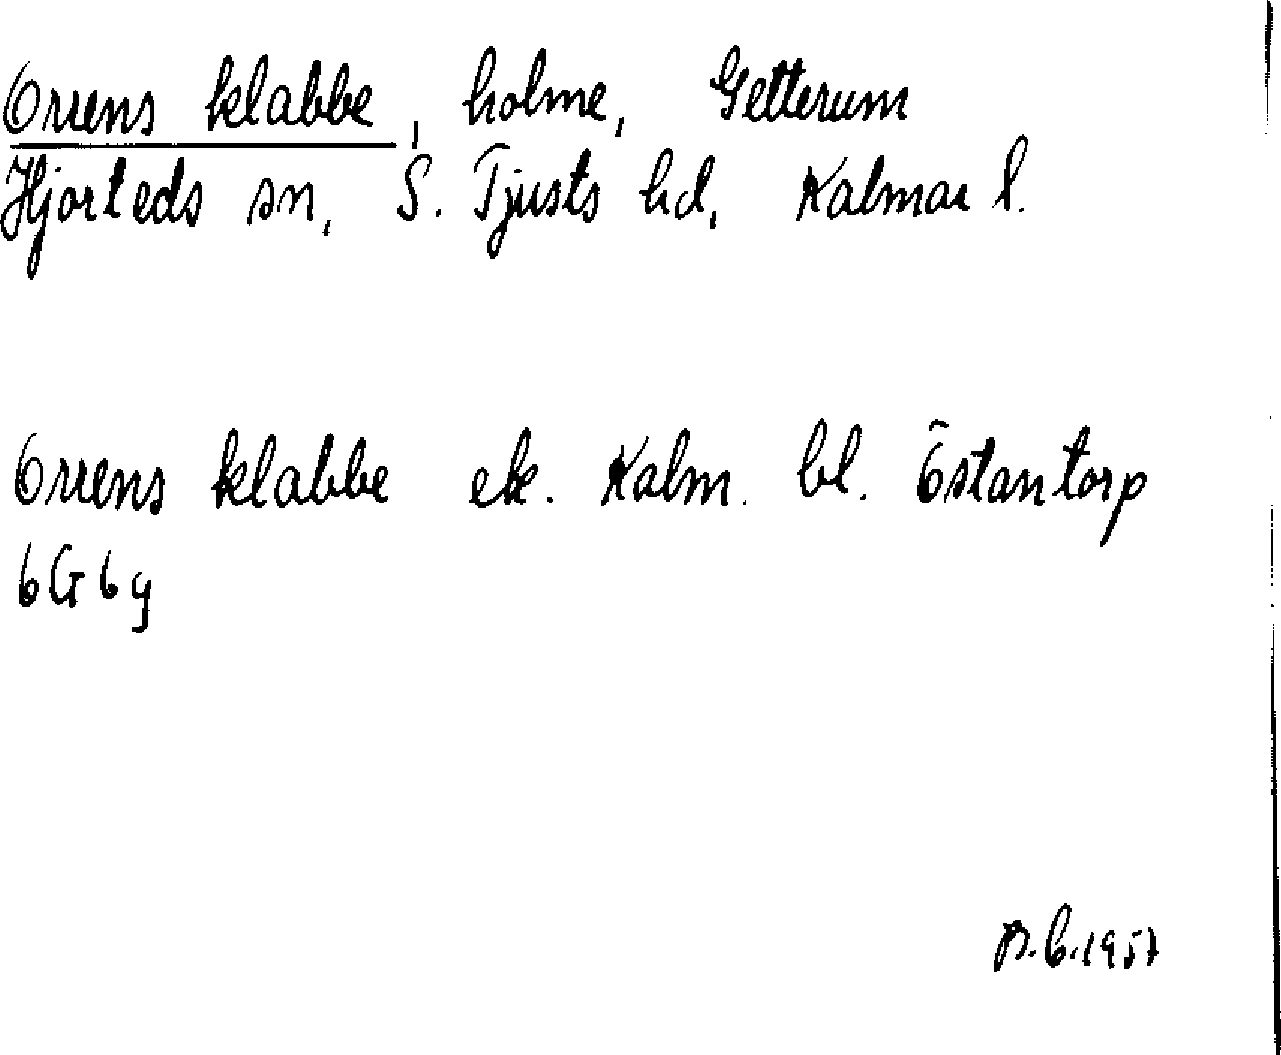 Orrens klabbe, holme, Getterum
Hjorteds sn, S. Tjusts hd, Kalmar l.
Orrens klabbe ek. Kalm. bl. Östantorp
6G6g
B.C. 1957